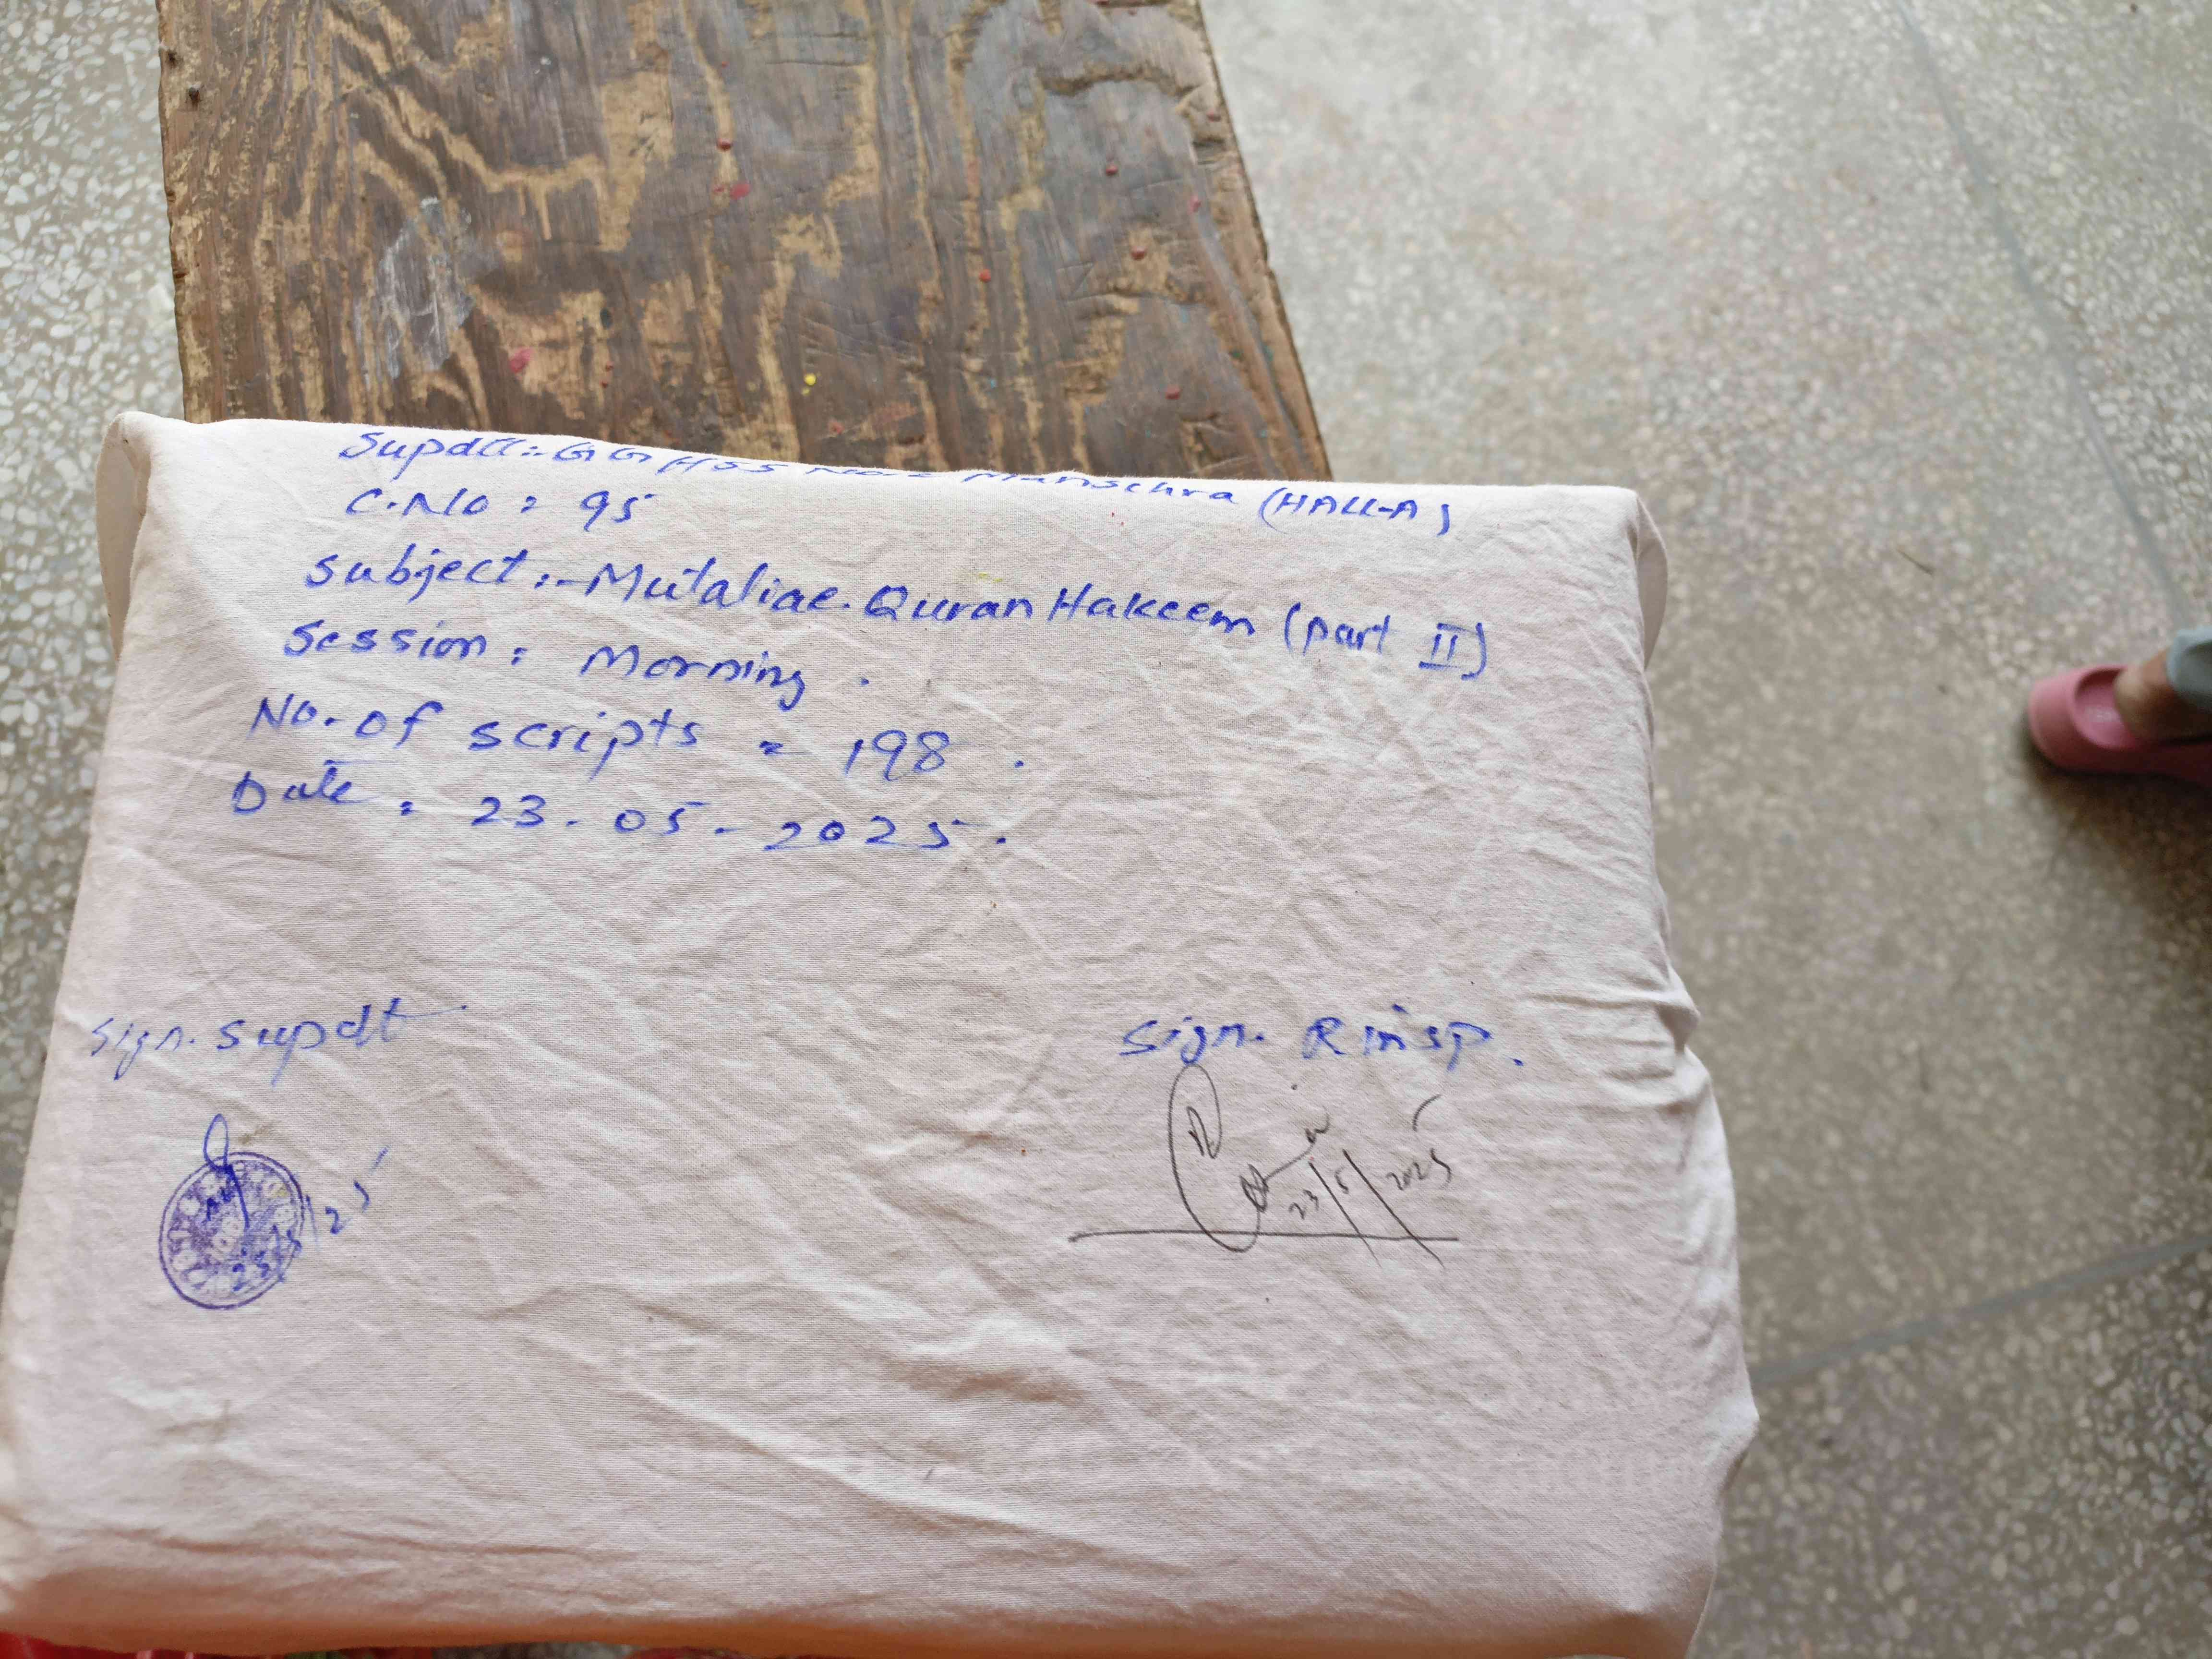 Supdtt:- GGHSS No.2 Mansehra (HALL-A)
C.No = 95
Subject:- Mutaliae. Quran Hakeem (part II)
Session: Morning.
No. of scripts = 198.
Date: 23-05-2025.
Sign. Supdt
Sign. R insp.
23/5/2025